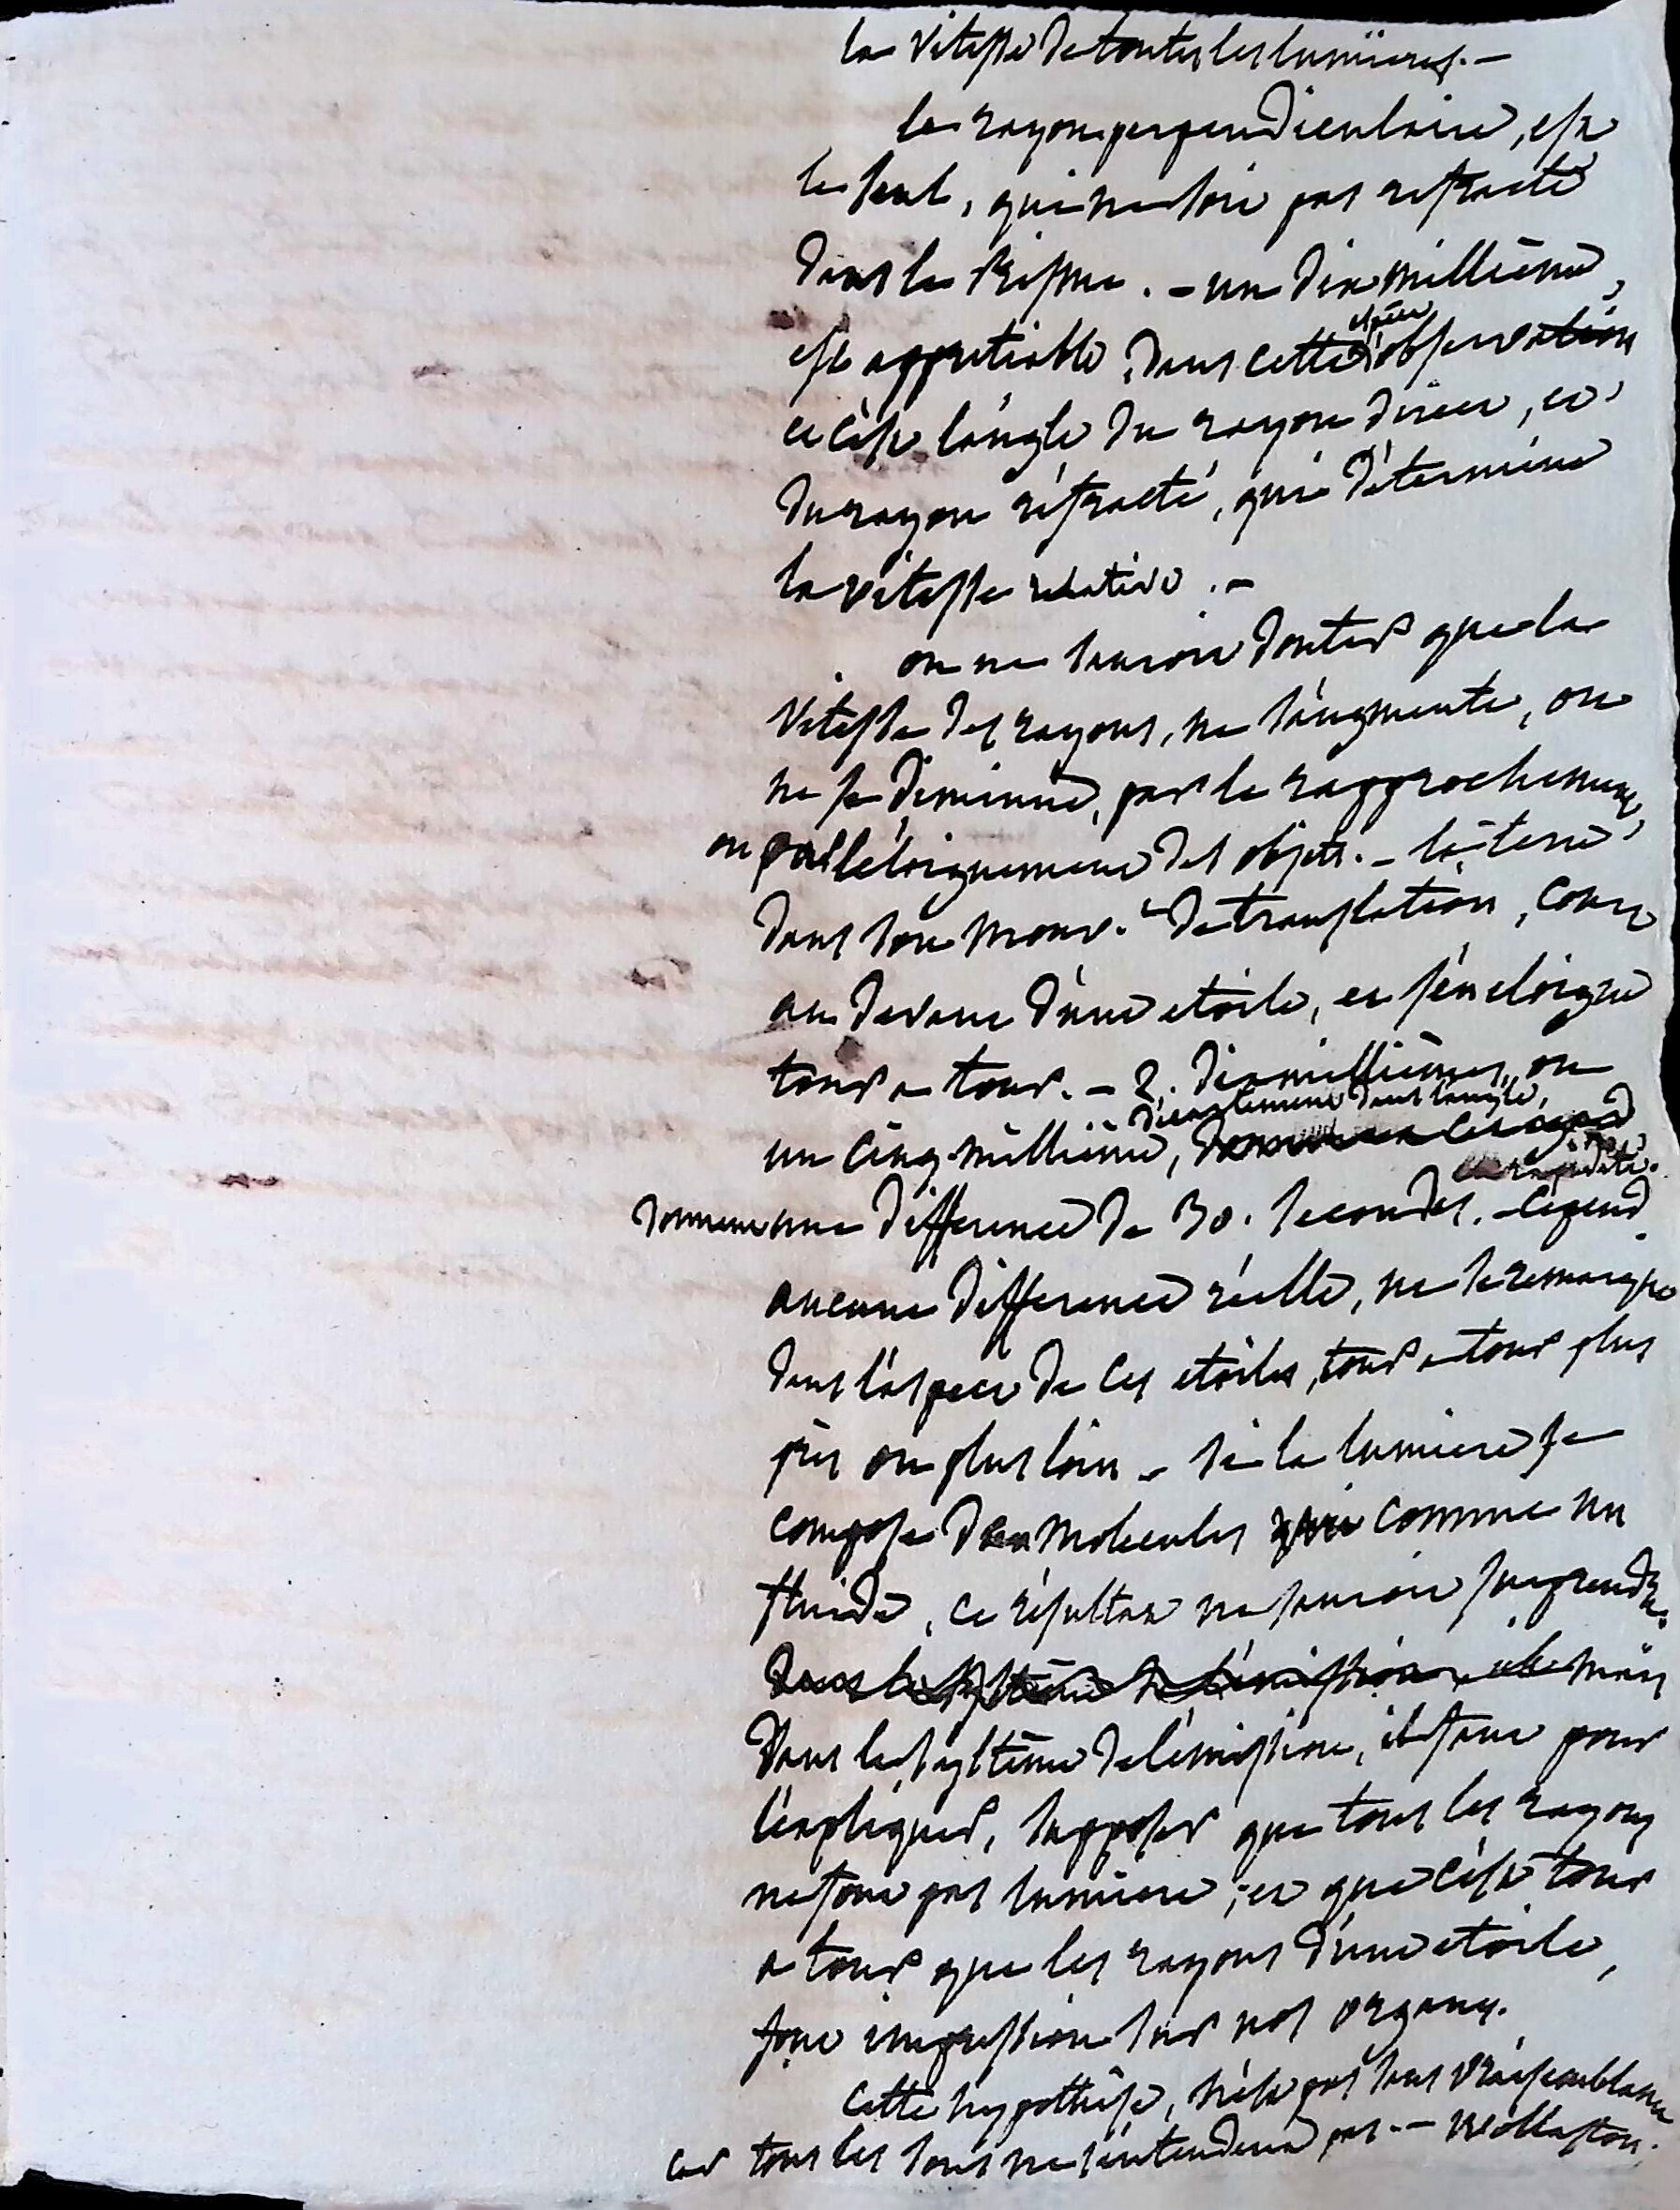 la vitesse de toutes les lumières. —
le rayon perpendiculaire, est
le seul, qui ne soit pas refracté
dans le prisme. - un dix millième,
est appretiable, dans cette espèce d'observation
et c'est l'angle du rayon direct, et
du rayon réfracté, qui détermine
la vitesse relative. -
on ne sauroit douter que la
vitesse des rayons, ne s'augmente, ou
ne se diminue, par le rapprochement,
ou par l'éloignement des objets. - la terre
dans son mouv.t de translation, court
au devant d'une etoile, et s'en eloigne
tour a tour. - 2. dix millièmes, ou
un cinq-millième, d'écartement dans l'angle,
rapidité.
donnent une difference de 30. secondes. - cepend.
aucune difference réelle, ne se remarque
dans l'aspect de ces etoiles, tour a tour plus
près ou plus loin - si la lumiere se
compose de molecules qui comme un
fluide, ce résultat ne sauroit surprendre.
dans le systême de l'émission, il mais
dans le systême de l'émission, il faut pour
l'expliquer, supposer que tous les rayons
ne sont pas lumiere; et que c'est tour
a tour que les rayons d'une etoile,
font impression sur nos organes.
cette hypothèse, n'est pas sans vraisemblance
car tous les sons ne s'entendent pas. - Wollaston.